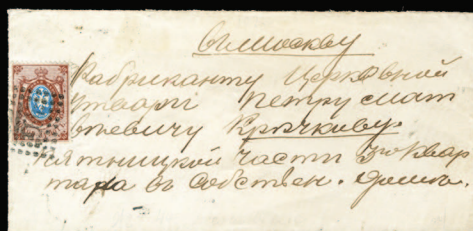 въ Москву
Фабриканту Церковной
утвари Петру Мат
веевичу Крючкову.
пятницкой части 3го квар
тала въ собствен. доме.